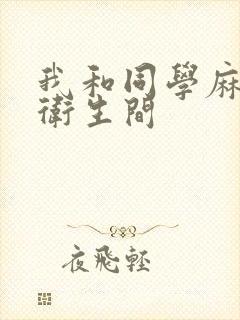 我和同學麻
衛生間
夜飛輕